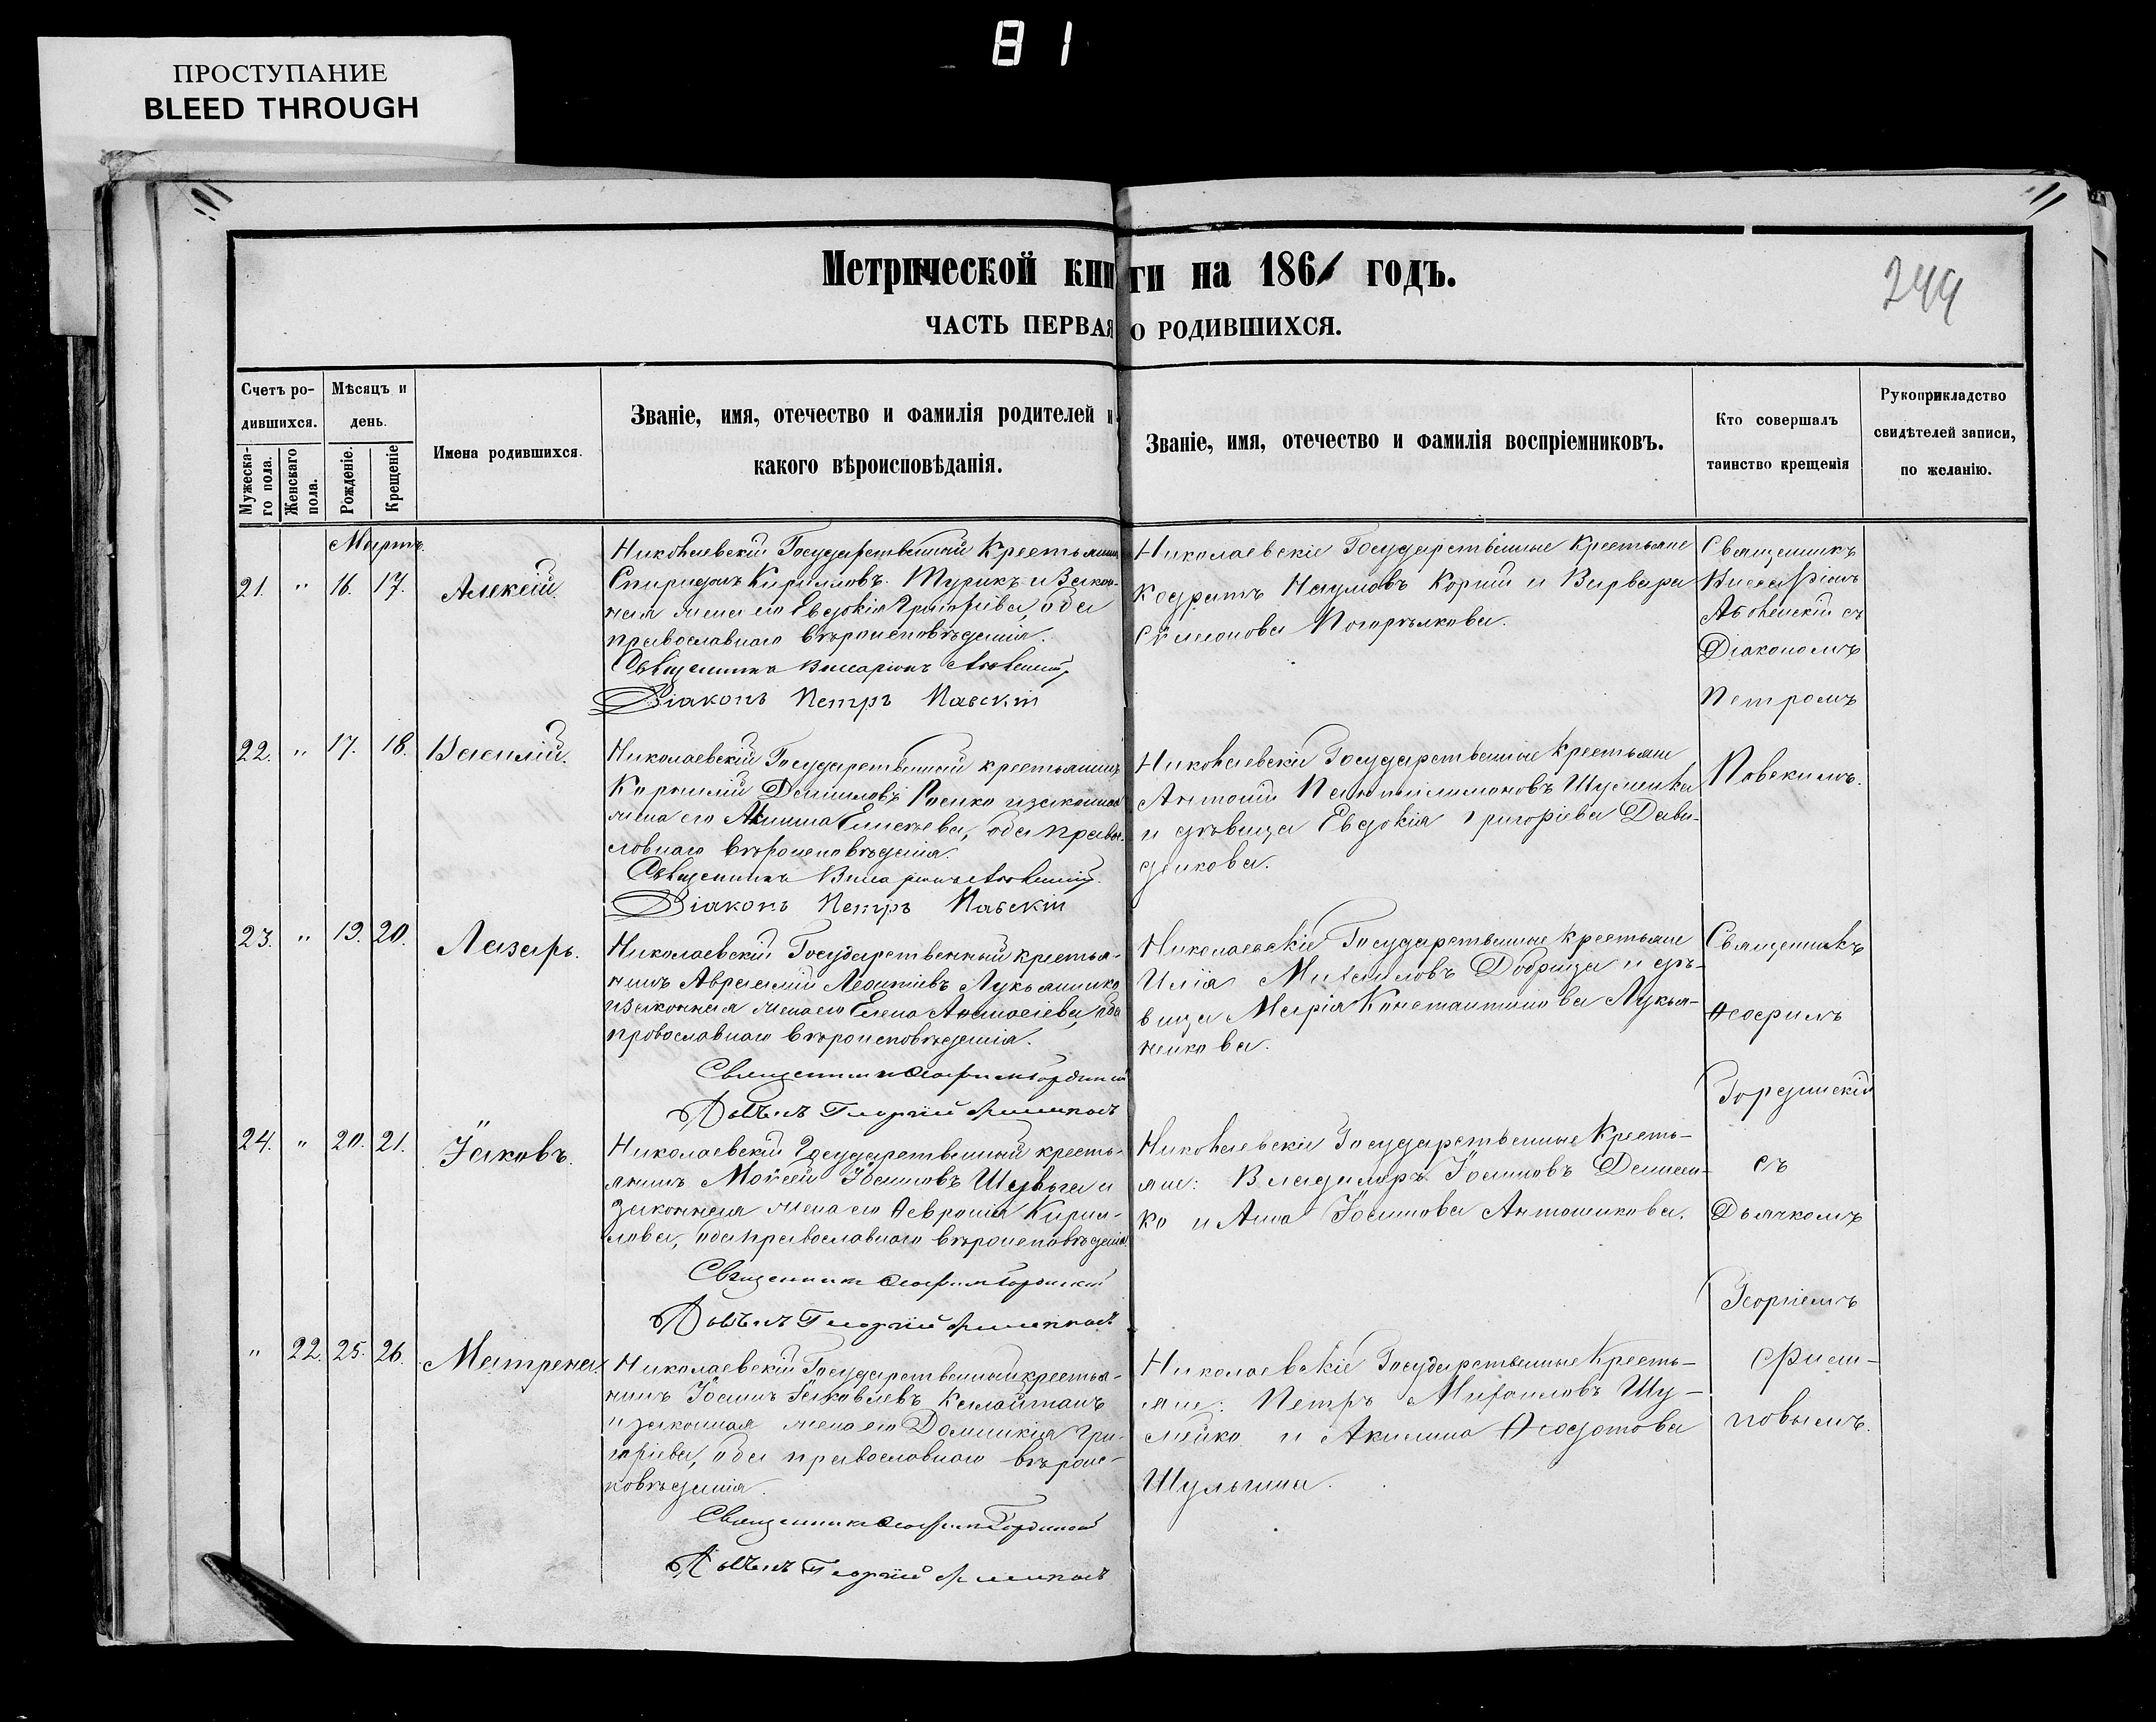 81
ПРОСТУПАНИЕ
BLEED THROUGH
11
11
Метрической книги на 1861 годъ.
244
ЧАСТЬ ПЕРВАЯ О РОДИВШИХСЯ.
Счетъ родившихся.
Мужескаго пола.
Женскаго пола.
Мѣсяцъ и день.
Рожденіе.
Крещеніе
Имена родившихся.
Званіе, имя, отечество и фамилія родителей и
какого вѣроисповѣданія.
Званіе, имя, отечество и фамилія воспріемниковъ.
Кто совершалъ
таинство крещенія
Рукоприкладство
свидѣтелей записи,
по желанію.
Мартъ.
21. " 16. 17. Алексій.
Николаевскій Государственный Крестьянинъ
Спиридонъ Кирилловъ Турикъ и закон-
ная жена его Евдокія Григоріева, оба
православнаго вѣроисповѣданія.
Священникъ Виссаріонъ
Діаконъ Петръ Павскій
Николаевскіе Государственные Крестьяне
Кодратъ Наумовъ Корній и Варвара
Симеонова Погорѣлкова.
Священникъ
Виссаріонъ
съ
Діакономъ
Петромъ
22. " 17. 18. Василій.
Николаевскій Государственный крестьянинъ
Корнилій Даниловъ и законная
жена его Елисеева, оба право-
славнаго вѣроисповѣданія.
Священникъ Виссаріонъ
Діаконъ Петръ Павскій
Николаевскіе Государственные крестьяне
Антоній Пантилимоновъ Шумейка
и дѣвица Евдокія Григоріева Дави-
денкова.
Повскимъ.
23. " 19. 20. Лазарь.
Николаевскій Государственный крестья-
нинъ Аврамій Леонтіевъ Лукьяненко
и законная жена его Елена Афанасіева, оба
православнаго вѣроисповѣданія.
Священникъ Ѳеофилъ Гординскій
Георгій
Николаевскіе Государственные крестьяне
Илія Михаиловъ Добрица и дѣ-
вица Марія Константинова Лукья-
ненкова.
Священникъ
Ѳеофилъ
Гординскій
24. " 20. 21. Іаковъ.
Николаевскій Государственный кресть-
янинъ Моисей Іосифовъ Шульга и
законная жена его Ѳеврошія Кирил-
лова, оба православнаго вѣроисповѣданія.
Священникъ Ѳеофилъ Гординскій
Георгій
Николаевскіе Государственные Кресть-
яне: Владимиръ Іосифовъ Денисен-
ко и Анна Іосифова Антошкова.
съ
Дьячкомъ
Георгіемъ
" 22. 25. 26. Матрена.
Николаевскій Государственный крестья-
нинъ Іосифъ Іаковлевъ Калайтанъ
и законная жена его Домникія Гри-
горіева, оба православнаго вѣроис-
повѣданія.
Священникъ Ѳеофилъ Гординскій
Георгій
Николаевскіе Государственные Кресть-
яне: Петръ Михаиловъ Шу-
мейко и Акилина Ѳеодотова
Шульгина.
Филип-
повымъ.